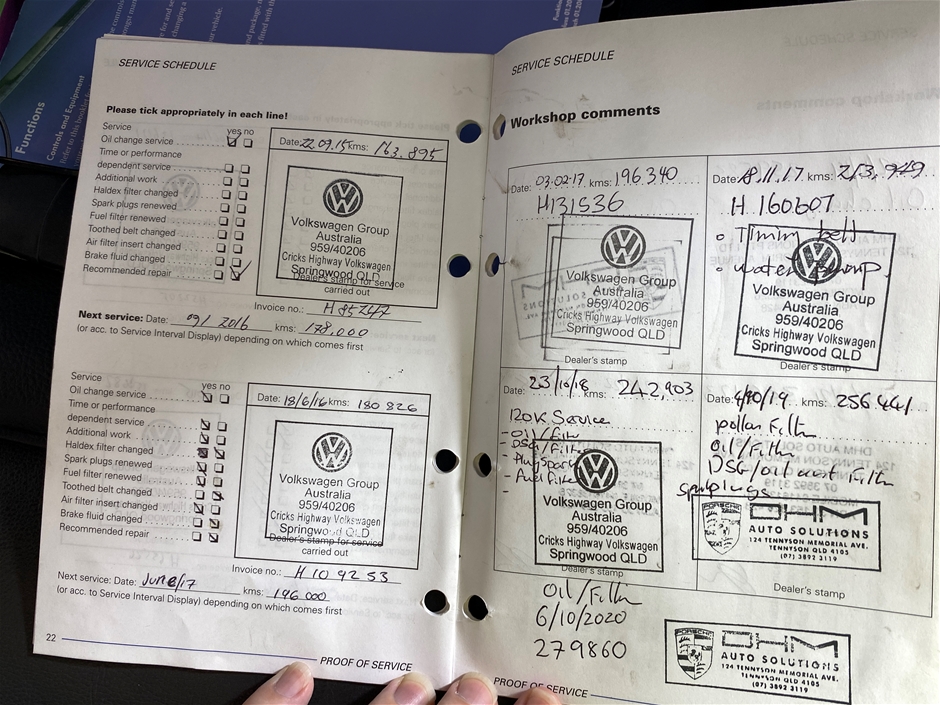 Functions
Controls and Equipment
SERVICE SCHEDULE
Please tick appropriately in each line!
Service
yes no
Oil change service
Time or performance
dependent service
Additional work
Haldex filter changed
Spark plugs renewed
Fuel filter renewed
Toothed belt changed
Air filter insert changed
Brake fluid changed
Recommended repair
Date: 22.09.15 kms: 163.895
Volkswagen Group
Australia
959/40206
Cricks Highway Volkswagen
Springwood QLD
Dealer's stamp for service
carried out
Invoice no.: H 85247
Next service: Date: 09/2016 kms: 178.000
(or acc. to Service Interval Display) depending on which comes first
Service
yes no
Oil change service
Time or performance
dependent service
Additional work
Haldex filter changed
Spark plugs renewed
Fuel filter renewed
Toothed belt changed
Air filter insert changed
Brake fluid changed
Recommended repair
Date: 18/6/16 kms: 180 826
Volkswagen Group
Australia
959/40206
Cricks Highway Volkswagen
Springwood QLD
Dealer's stamp for service
carried out
Invoice no.: H 109253
Next service: Date: June/17 kms: 196 000
(or acc. to Service Interval Display) depending on which comes first
22
PROOF OF SERVICE
SERVICE SCHEDULE
Workshop comments
Date: 03.02.17 kms: 196340
H131536
Volkswagen Group
Australia
959/40206
Cricks Highway Volkswagen
Springwood QLD
Dealer's stamp
Date: 18.11.17 kms: 213,949
H 160607
Timin belt
water pump
Volkswagen Group
Australia
959/40206
Cricks Highway Volkswagen
Springwood QLD
Dealer's stamp
Date: 23/10/18 242,903
120K Service
- Oil/Filter
- DSG/Filter
- Plug Spark
- Fuel Filter
-
Volkswagen Group
Australia
959/40206
Cricks Highway Volkswagen
Springwood QLD
Dealer's stamp
Date: kms: 256.441
pollen Filth
Oil/Filth
DSG/oil Filth
spkplugs
PORSCHE
OHM
AUTO SOLUTIONS
124 TENNYSON MEMORIAL AVE.
TENNYSON QLD 4105
(07) 3892 3119
Dealer's stamp
Oil/Filth
6/10/2020
279860
PORSCHE
OHM
AUTO SOLUTIONS
124 TENNYSON MEMORIAL AVE.
TENNYSON QLD 4105
(07) 3892 3119
PROOF OF SERVICE